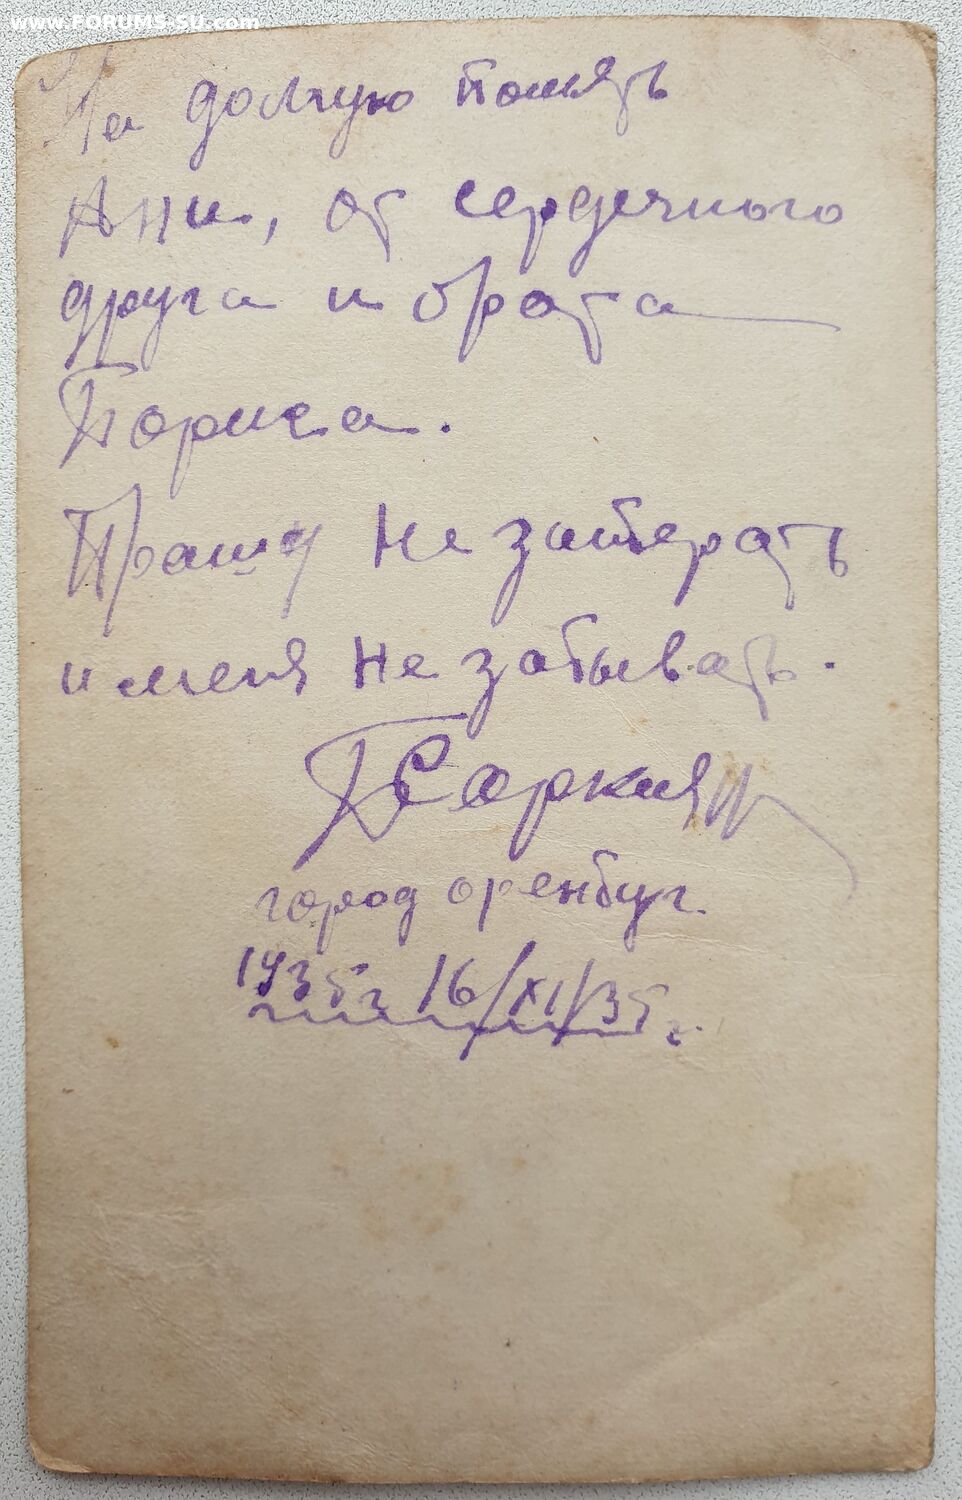 www.FORUMS-SU.com
На долгую память
Ани, от сердечного
друга и брата
Бориса.
Прашу не
и меня не забывать.
город оренбург.
1935г 16/XI/35 г.